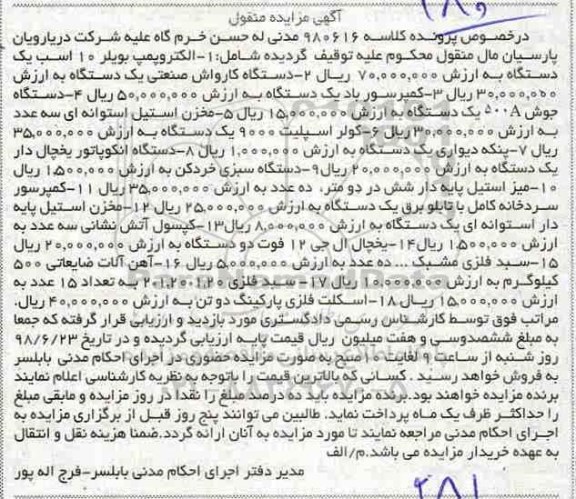 ۲۸۰
آگهی مزایده منقول
درخصوص پرونده کلاسه ۹۸۰۶۱۶ مدنی له حسن خرم گاه علیه شرکت دریارویان
پارسیان مال منقول محکوم علیه توقیف گردیده شامل:۱-الکتروپمپ بویلر ۱۰ اسب یک
دستگاه به ارزش ۷۰,۰۰۰,۰۰۰ ریال ۲-دستگاه کارواش صنعتی یک دستگاه به ارزش
۳۰,۰۰۰,۰۰۰ ریال ۳-کمپرسور باد یک دستگاه به ارزش ۵۰,۰۰۰,۰۰۰ ریال ۴-دستگاه
جوش ۵۰۰A یک دستگاه به ارزش ۱۵,۰۰۰,۰۰۰ ریال ۵-مخزن استیل استوانه ای سه عدد
به ارزش ۳۰,۰۰۰,۰۰۰ ریال ۶-کولر اسپلیت ۹۰۰۰ یک دستگاه به ارزش ۳۵,۰۰۰,۰۰۰
ریال ۷-پنکه دیواری یک دستگاه به ارزش ۱,۰۰۰,۰۰۰ ریال ۸-دستگاه انکوپاتور یخچال دار
یک دستگاه به ارزش ۲۰,۰۰۰,۰۰۰ ریال۹-دستگاه سبزی خردکن به ارزش ۱,۵۰۰,۰۰۰ ریال
۱۰-میز استیل پایه دار شش در دو متر، ده عدد به ارزش ۳۵,۰۰۰,۰۰۰ ریال ۱۱-کمپرسور
سردخانه کامل با تابلو برق یک دستگاه به ارزش ۲۵,۰۰۰,۰۰۰ ریال ۱۲-مخزن استیل پایه
دار استوانه ای یک دستگاه به ارزش ۸,۰۰۰,۰۰۰ ریال۱۳-کپسول آتش نشانی سه عدد به
ارزش ۱,۵۰۰,۰۰۰ ریال۱۴-یخچال ال جی ۱۲ فوت دو دستگاه به ارزش ۲۰,۰۰۰,۰۰۰ ریال
۱۵-سبد فلزی مشبک ... ده عدد به ارزش ۵,۰۰۰,۰۰۰ ریال ۱۶-آهن آلات ضایعاتی ۵۰۰
کیلوگرم به ارزش ۱۰,۰۰۰,۰۰۰ ریال ۱۷-سبد فلزی به تعداد ۱۵ عدد به
ارزش ۱۵,۰۰۰,۰۰۰ ریال ۱۸-اسکلت فلزی پارکینگ دو تن به ارزش ۴۰,۰۰۰,۰۰۰ ریال.
مراتب فوق توسط کارشناس رسمی دادگستری مورد بازدید و ارزیابی قرار گرفته که جمعا
به مبلغ ششصدوسی و هفت میلیون ریال قیمت پایه ارزیابی گردیده و در تاریخ ۹۸/۶/۲۳
روز شنبه از ساعت ۹ لغایت ۱۰ صبح به صورت مزایده حضوری در اجرای احکام مدنی بابلسر
به فروش خواهد رسید . کسانی که بالاترین قیمت را باتوجه به نظریه کارشناسی اعلام نمایند
برنده مزایده خواهند بود.برنده مزایده باید ده درصد مبلغ را نقدا در روز مزایده و مابقی مبلغ
را حداکثر ظرف یک ماه پرداخت نماید. طالبین می توانند پنج روز قبل از برگزاری مزایده به
اجرای احکام مدنی مراجعه نمایند تا مورد مزایده به آنان ارائه گردد.ضمنا هزینه نقل و انتقال
به عهده خریدار مزایده می باشد.م/الف
مدیر دفتر اجرای احکام مدنی بابلسر-فرج اله پور
۲۸۱